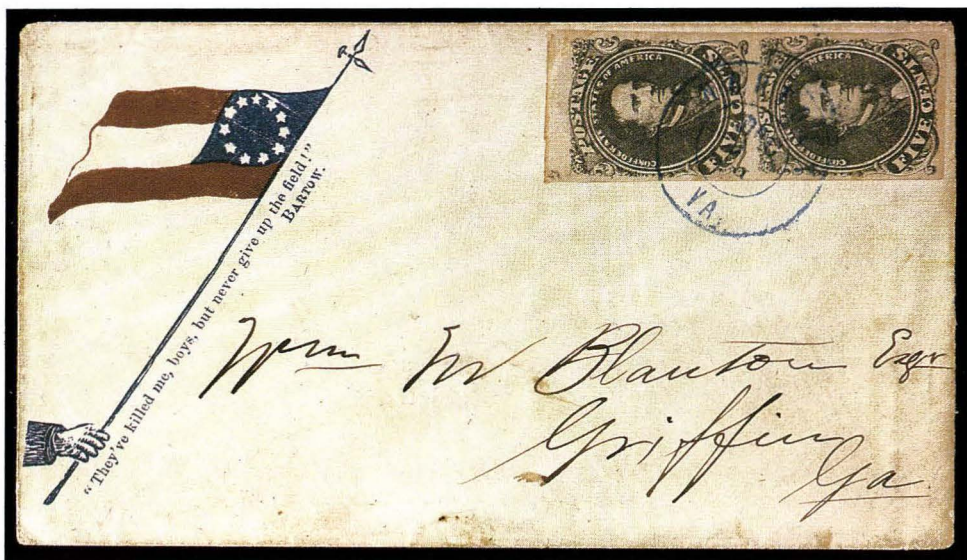 "They've killed me, boys, but never give up the field!"
BARTOW.
POSTAGE
CONFEDERATE STATES OF AMERICA
FIVE CENTS
POSTAGE
CONFEDERATE STATES OF AMERICA
FIVE CENTS
VA.
Wm M Blanton Esqr
Griffin
Ga